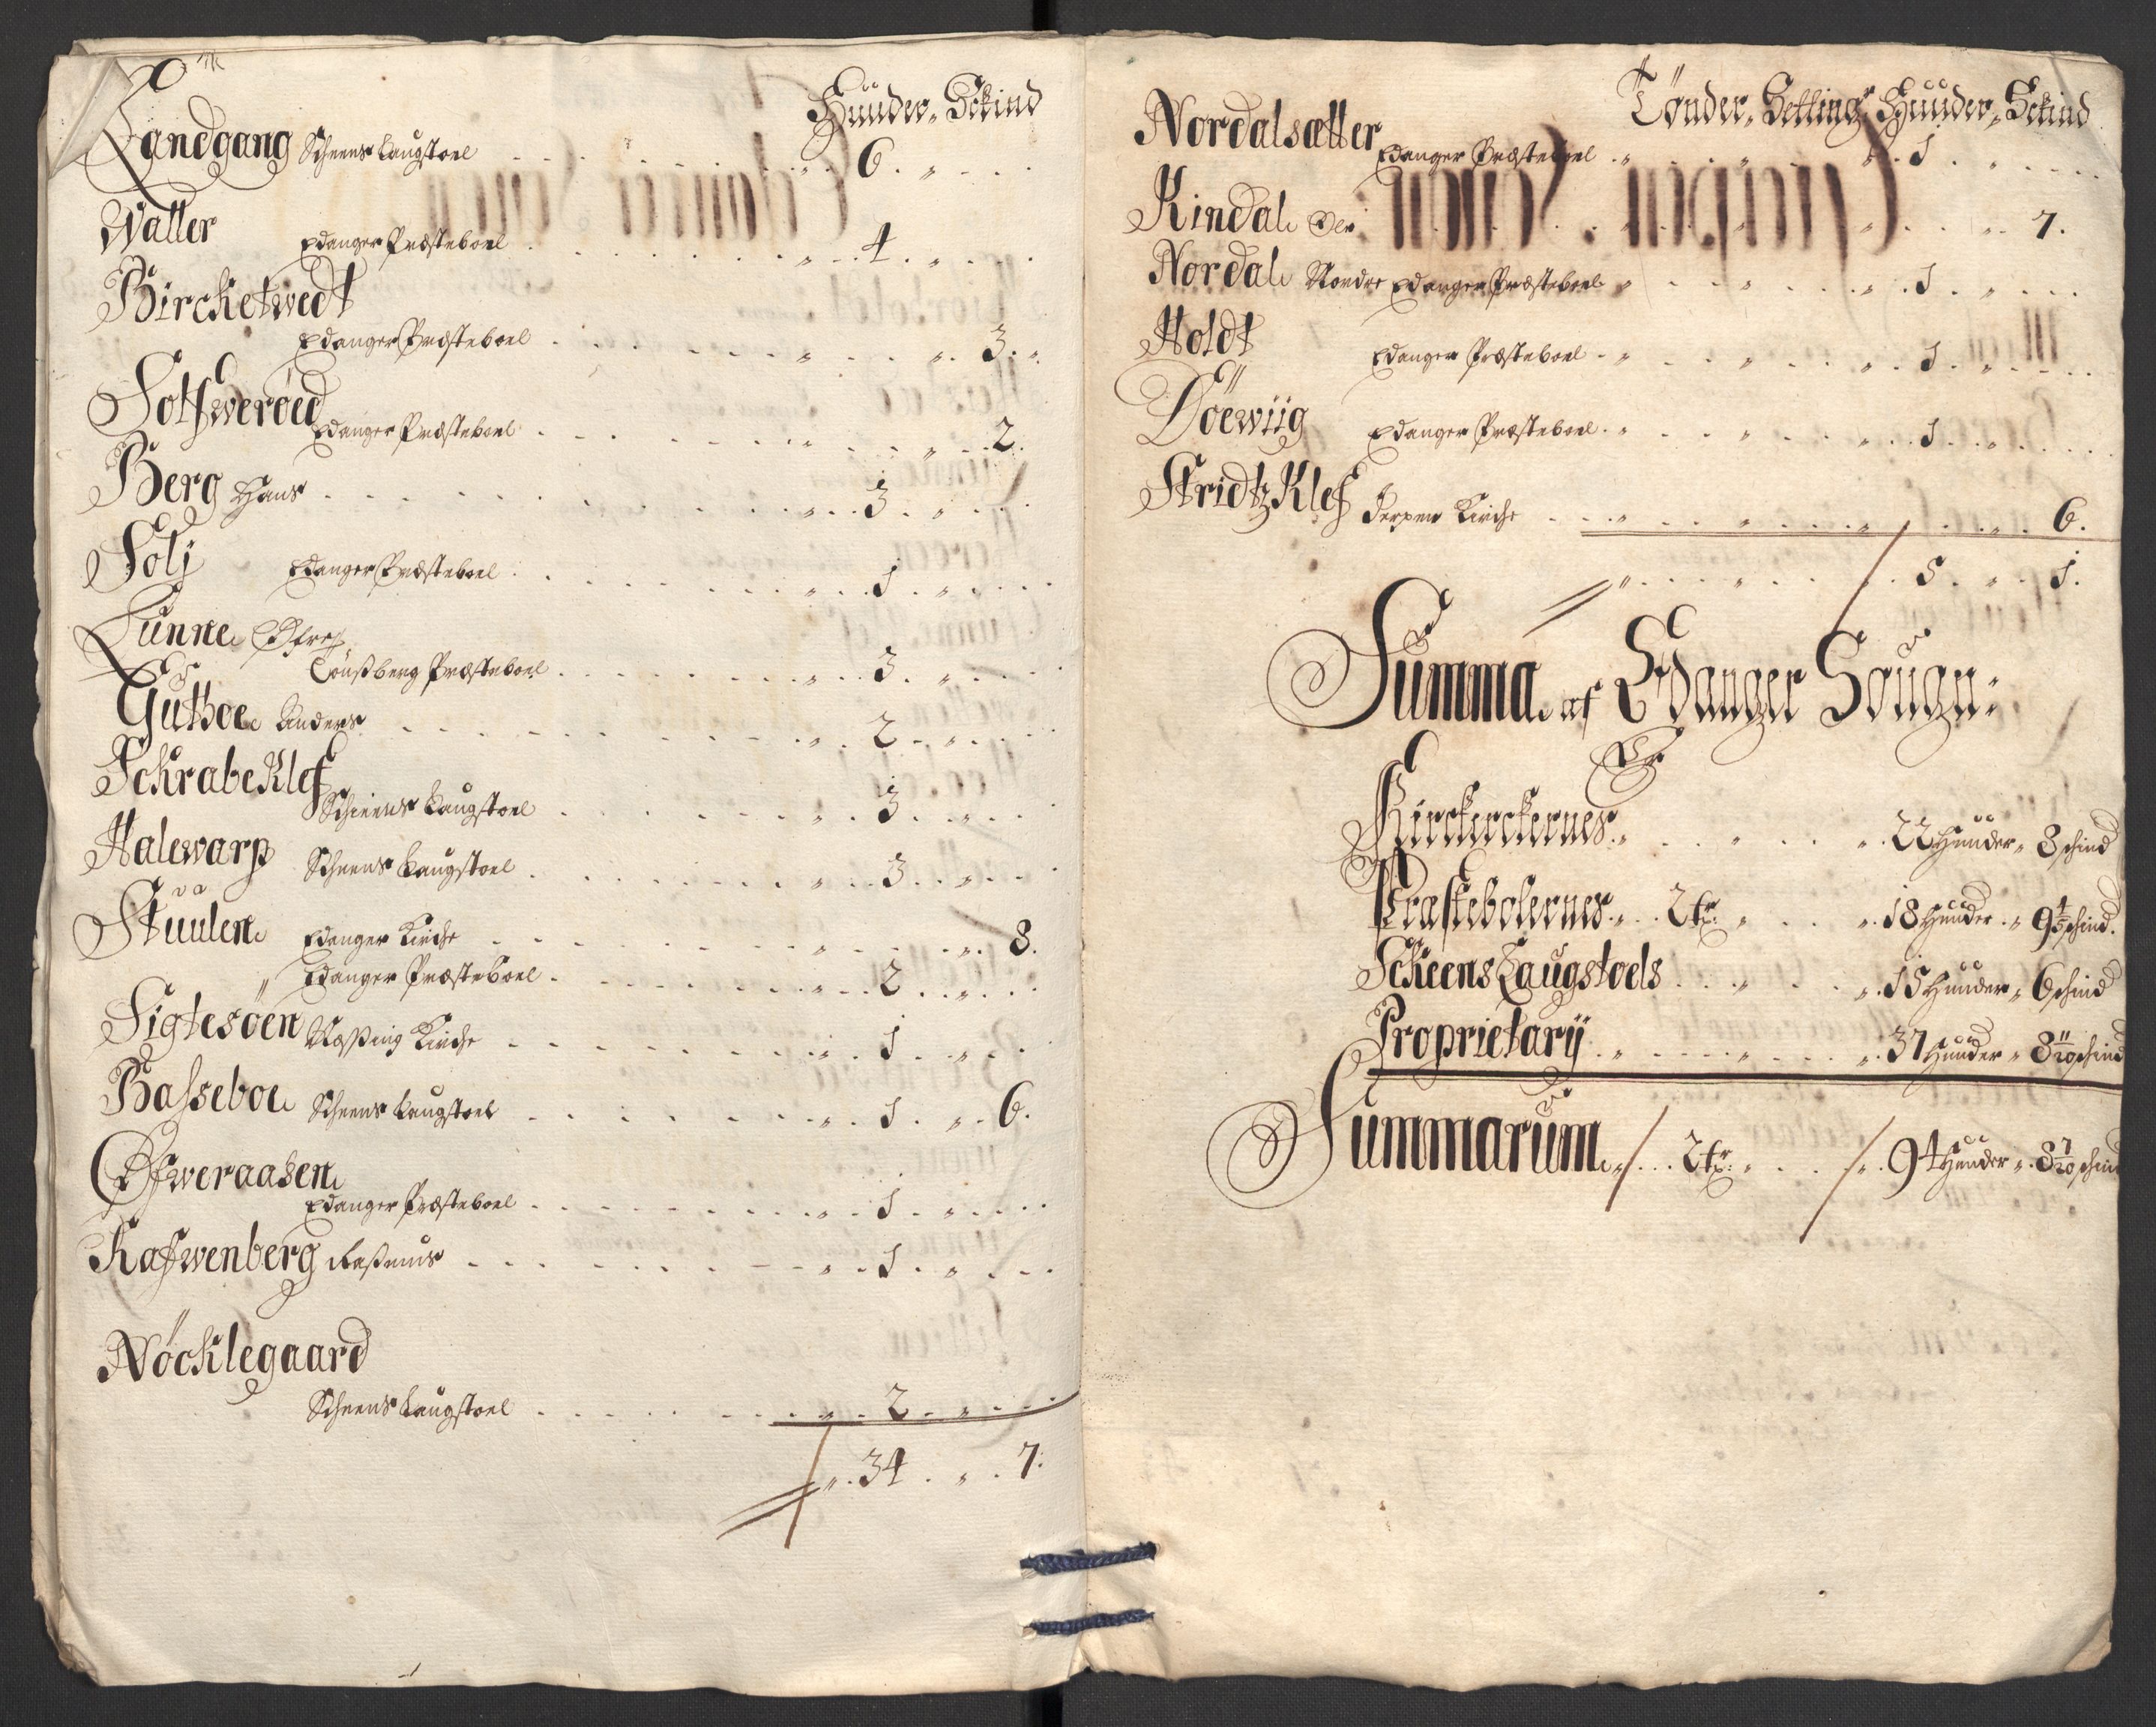 Huuder. Schind
Landgang Scheens Laugstoel 6
Waller
Edanger Præsteboel 4
Bircketwedt
Edanger Præsteboel 3.
Solfweröed
Edanger Præsteboel 2.
Berg Hans 3
Solj Edanger Præsteboel 1
Lunne
Tönßberg Præsteboel 3
Gutboe Anders 2
Schrabeklef
Scheens Laugstoel 3
Halewarp Scheens Laugstoel 3
Stuulen Edanger Kirche 8.
Edanger Præsteboel 2
Sigtesöen Kirche 1
Basseboe Scheens Laugstoel 1 6.
Ofweraasen
Edanger Præsteboel 1
Rafwenberg Raßmus 1
Nöcklegaard
Scheens Laugstoel 2
34 7.
Tønder. Setting. Huuder. Schind
Nordalsætter Edanger Præsteboel 1
Kindal Ole 7.
Nordal Nordre Edanger Præsteboel 1
Holdt Edanger Præsteboel 1
Döewiig Edanger Præsteboel 1
StridtzKlef Kirche 6.
5 1.
Summa af Edanger Sougn:
Er
Kirckerckernes 22 Huuder 8 schind
Præstebolernes 2 tr: 18 Huuder 9 schind.
Scheens Laugstoels 15 Huuder 6 schind
Proprietarÿ 37 Huuder 8 11/20 schind
Summarum 2 tr: 94 Huuder 8 7/20 schind